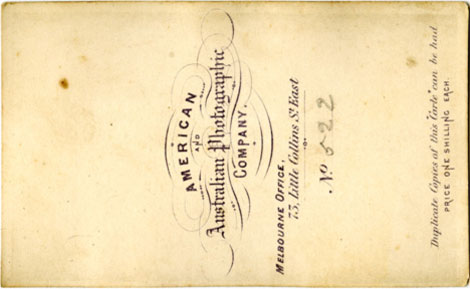 AMERICAN
AND
Australian Photographic
COMPANY.
MELBOURNE OFFICE,
73, Little Collins St. East
No. 522
Duplicate Copies of this "Carte" can be had
PRICE ONE SHILLING EACH.